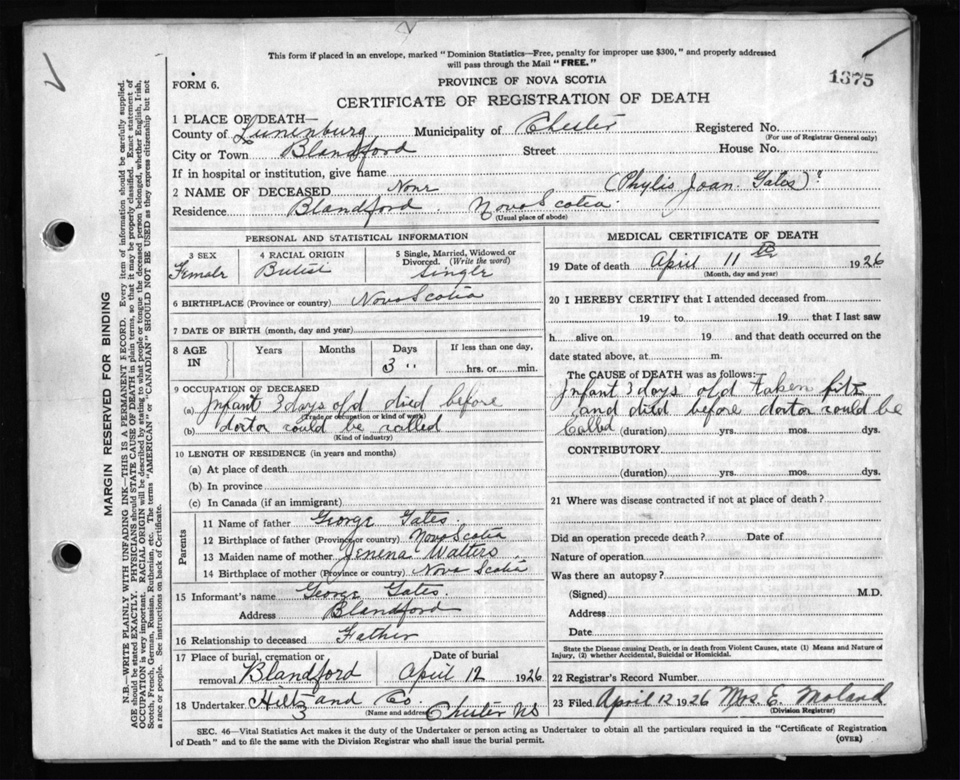 This form if placed in an envelope, marked "Dominion Statistics—Free, penalty for improper use $300," and properly addressed
will pass through the Mail "FREE."
FORM 6.
PROVINCE OF NOVA SCOTIA
1375
CERTIFICATE OF REGISTRATION OF DEATH
1 PLACE OF DEATH—
County of Lunenburg Municipality of Chester Registered No.
(For use of Registrar General only)
City or Town Blandford Street House No.
If in hospital or institution, give name
2 NAME OF DECEASED None (Phylis Joan Gates)
Residence Blandford. Nova Scotia.
(Usual place of abode)
PERSONAL AND STATISTICAL INFORMATION
3 SEX Female
4 RACIAL ORIGIN British
5 Single, Married, Widowed or Divorced. (Write the word)
Single
6 BIRTHPLACE (Province or country) Nova Scotia
7 DATE OF BIRTH (month, day and year)
8 AGE IN
Years Months Days If less than one day,
3 " hrs. or min.
9 OCCUPATION OF DECEASED
(a) Infant 3 days old died before
(Trade or occupation or kind of work)
(b) doctor could be called
(Kind of industry)
10 LENGTH OF RESIDENCE (in years and months)
(a) At place of death
(b) In province
(c) In Canada (if an immigrant)
Parents
11 Name of father George Gates.
12 Birthplace of father (Province or country) Nova Scotia
13 Maiden name of mother Walters
14 Birthplace of mother (Province or country) Nova Scotia
15 Informant's name George Gates.
Address Blandford
16 Relationship to deceased Father
17 Place of burial, cremation or removal Blandford
Date of burial
April 12 1926
18 Undertaker Hiltz and Co
(Name and address) Chester NS
MEDICAL CERTIFICATE OF DEATH
19 Date of death April 11th 1926
(Month, day and year)
20 I HEREBY CERTIFY that I attended deceased from
19 to 19 that I last saw
h alive on 19 and that death occurred on the
date stated above, at m.
The CAUSE of DEATH was as follows:
Infant 3 days old taken fits
and died before doctor could be
Called (duration) yrs. mos. dys.
CONTRIBUTORY
(duration) yrs. mos. dys.
21 Where was disease contracted if not at place of death?
Did an operation precede death? Date of
Nature of operation
Was there an autopsy?
(Signed) M.D.
Address
Date
State the Disease causing Death, or in death from Violent Causes, state (1) Means and Nature of
Injury, (2) whether Accidental, Suicidal or Homicidal.
22 Registrar's Record Number
23 Filed April 12 1926 Mrs. E.
(Division Registrar)
SEC. 46—Vital Statistics Act makes it the duty of the Undertaker or person acting as Undertaker to obtain all the particulars required in the "Certificate of Registration
of Death" and to file the same with the Division Registrar who shall issue the burial permit.
(OVER)
MARGIN RESERVED FOR BINDING
N.B.—WRITE PLAINLY WITH UNFADING INK—THIS IS A PERMANENT RECORD. Every item of information should be carefully supplied.
AGE should be stated EXACTLY. PHYSICIANS should STATE CAUSE OF DEATH in plain terms, so that it may be properly classified. Exact statement of
OCCUPATION is very important. RACIAL ORIGIN will be described by stating to what people or tongue the deceased person belonged, whether English, Irish,
Scotch, French, German, Russian, Ruthenian, etc. The terms "AMERICAN" or "CANADIAN" SHOULD NOT BE USED as they express citizenship but not
a race or people. See instructions on back of Certificate.